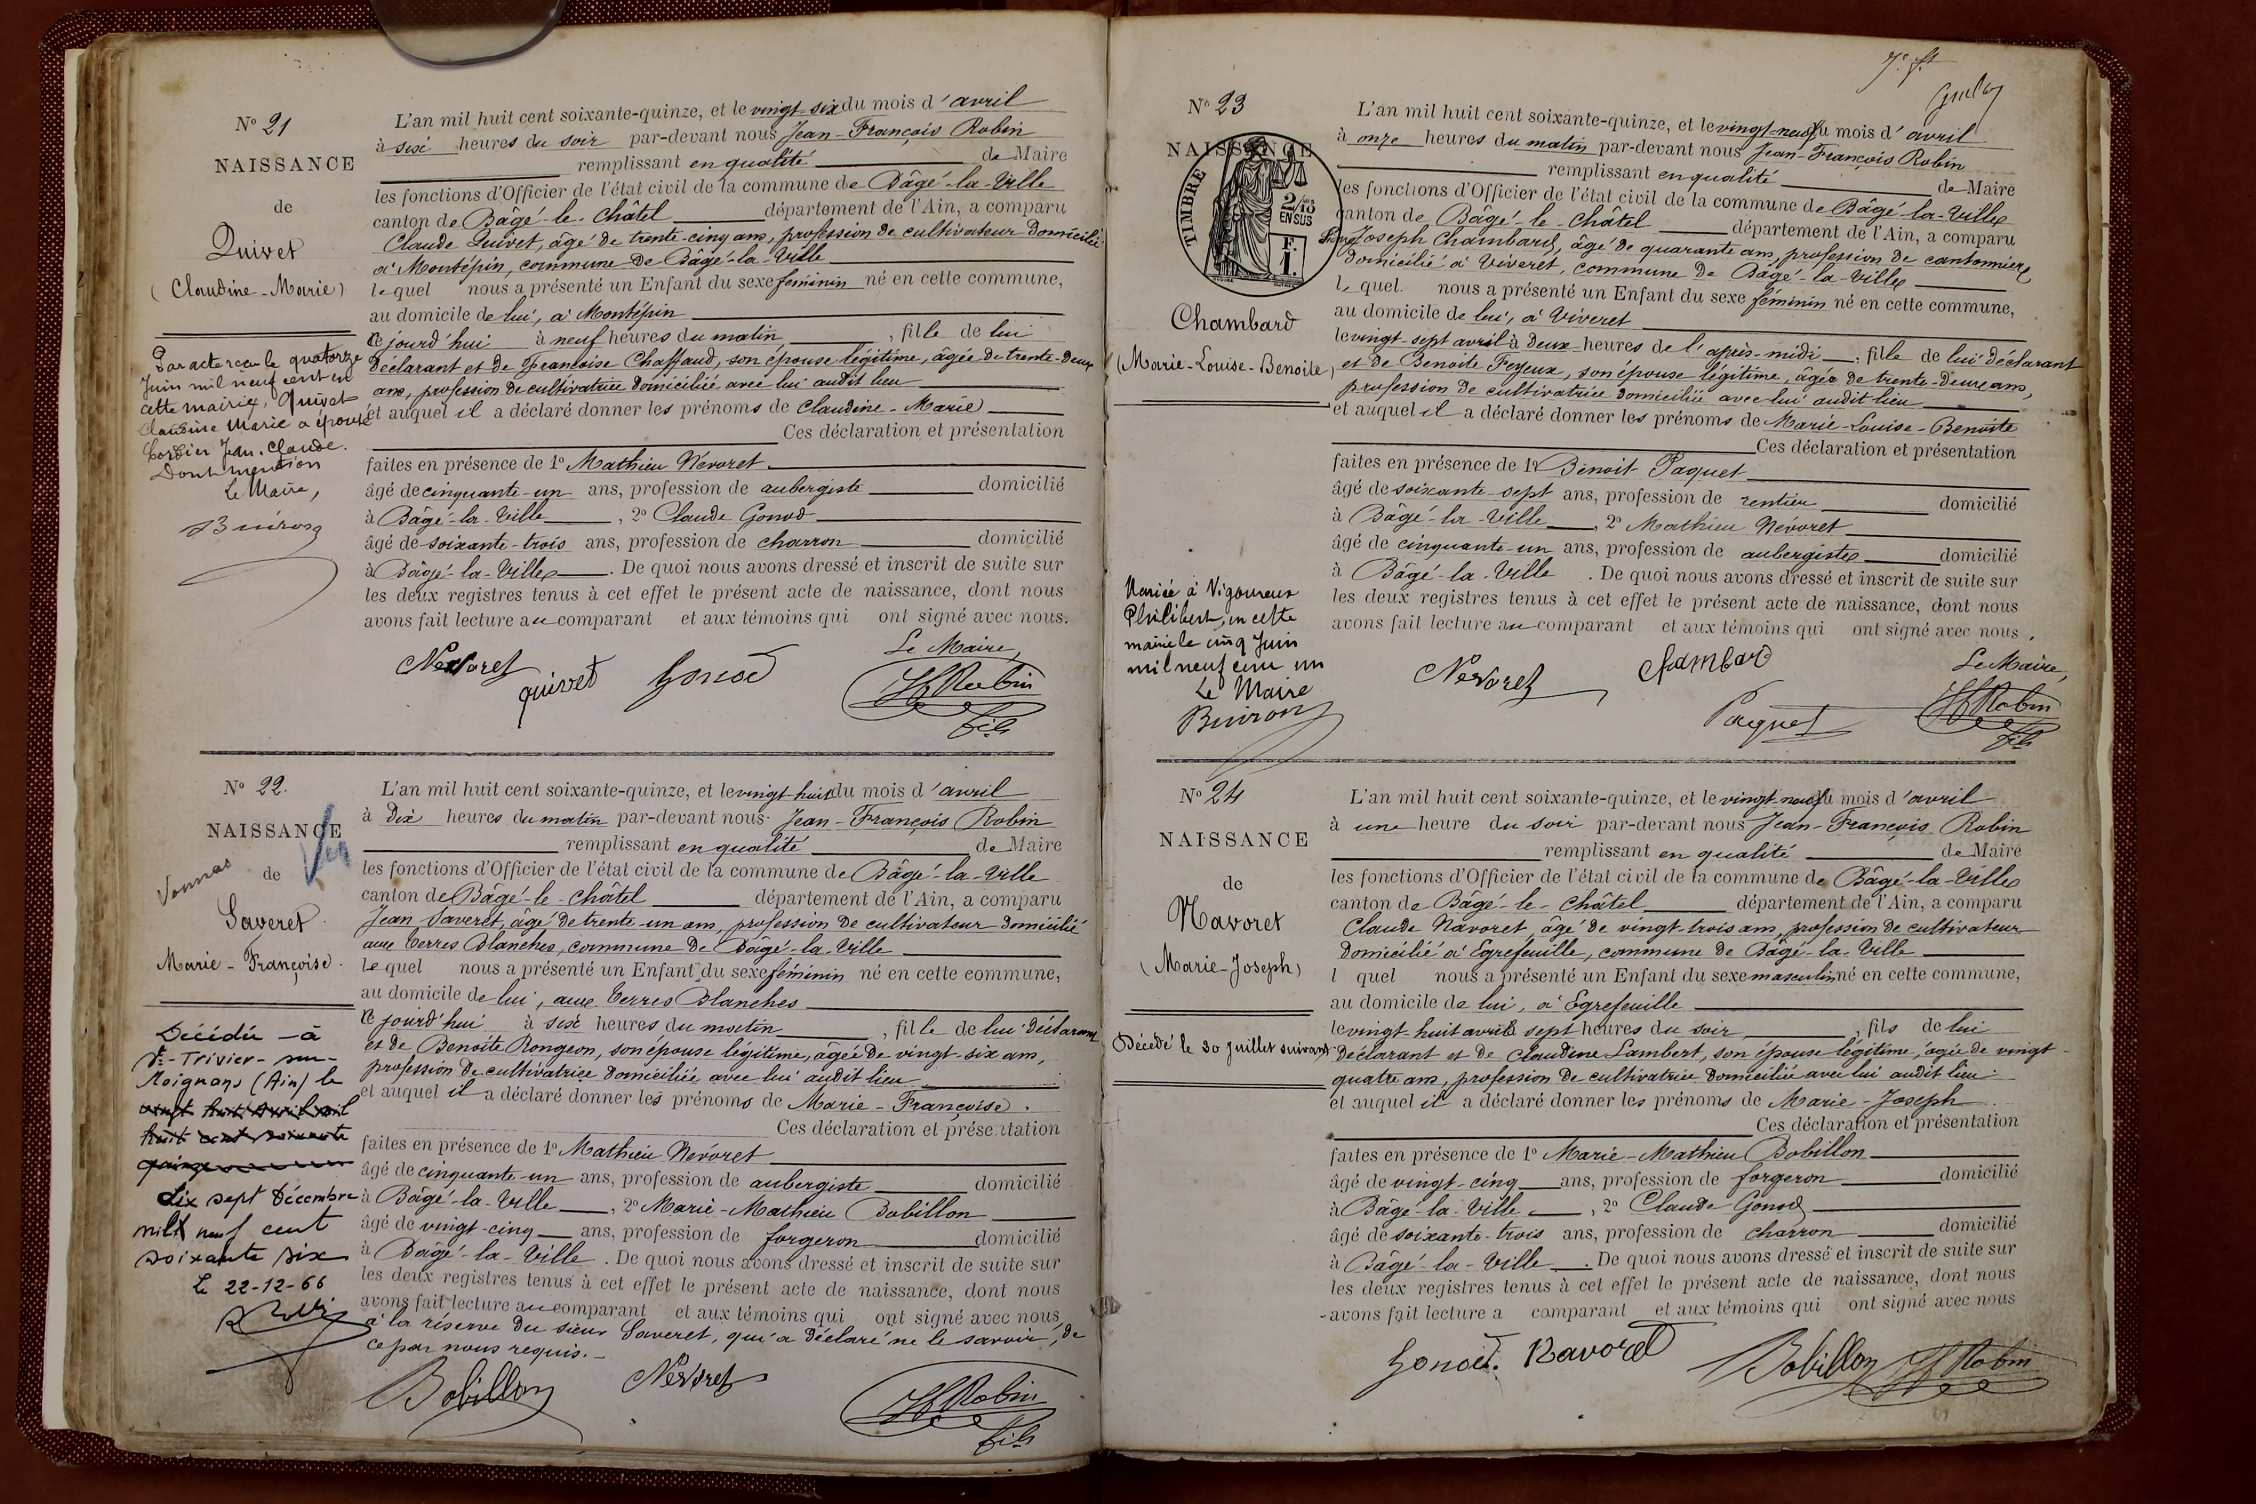 N° 21
NAISSANCE
de
Quivet
(Claudine-Marie)
Par acte reçu le quatorze
Juin mil neuf cent en
cette mairie, Quivet
Claudine Marie a épousé
Cordier Jean-Claude.
Dont mention
Le Maire,
Buiron
L'an mil huit cent soixante-quinze, et le vingt-six du mois d'avril
à six heures du soir par-devant nous Jean-François Robin
remplissant en qualité de Maire
les fonctions d'Officier de l'état civil de la commune de Bâgé-la-Ville
canton de Bâgé-le-Châtel département de l'Ain, a comparu
Claude Quivet, âgé de trente-cinq ans, profession de cultivateur domicilié
à Montépin, commune de Bâgé-la-Ville
lequel nous a présenté un Enfant du sexe féminin né en cette commune,
au domicile de lui, à Montépin
ce jourd'hui à neuf heures du matin, fille de lui
déclarant et de Françoise Chaffaud, son épouse légitime, âgée de trente-deux
ans, profession de cultivatrice domiciliée avec lui audit lieu
et auquel il a déclaré donner les prénoms de Claudine-Marie
Ces déclaration et présentation
faites en présence de 1° Mathieu Nevoret
âgé de cinquante-un ans, profession de aubergiste domicilié
à Bâgé-la-Ville, 2° Claude Gonod
âgé de soixante-trois ans, profession de charron domicilié
à Bâgé-la-Ville. De quoi nous avons dressé et inscrit de suite sur
les deux registres tenus à cet effet le présent acte de naissance, dont nous
avons fait lecture au comparant et aux témoins qui ont signé avec nous.
Le Maire,
Nevoret quivet Gonod JfRobin
fils
N° 22.
NAISSANCE
de
Vonnas
Saveret
Marie-Françoise.
Décédée à
St-Trivier-sur-
Moignans (Ain) le
vingt huit Avril mil
huit cent soixante
quinze
dix sept Décembre
mil neuf cent
soixante six
Le 22-12-66
L'an mil huit cent soixante-quinze, et le vingt-huit du mois d'avril
à dix heures du matin par-devant nous Jean-François Robin
remplissant en qualité de Maire
les fonctions d'Officier de l'état civil de la commune de Bâgé-la-Ville
canton de Bâgé-le-Châtel département de l'Ain, a comparu
Jean Saveret, âgé de trente-un ans, profession de cultivateur domicilié
aux Terres Blanches, commune de Bâgé-la-Ville
lequel nous a présenté un Enfant du sexe féminin né en cette commune,
au domicile de lui, aux Terres Blanches
ce jourd'hui à six heures du matin, fille de lui déclarant
et de Benoite Rongeon, son épouse légitime, âgée de vingt-six ans,
profession de cultivatrice domiciliée avec lui audit lieu
et auquel il a déclaré donner les prénoms de Marie-Françoise.
Ces déclaration et présentation
faites en présence de 1° Mathieu Nevoret
âgé de cinquante-un ans, profession de aubergiste domicilié
à Bâgé-la-Ville, 2° Marie-Mathieu Bobillon
âgé de vingt-cinq ans, profession de forgeron domicilié
à Bâgé-la-Ville. De quoi nous avons dressé et inscrit de suite sur
les deux registres tenus à cet effet le présent acte de naissance, dont nous
avons fait lecture au comparant et aux témoins qui ont signé avec nous
à la réserve du sieur Saveret, qui a déclaré ne le savoir, de
ce par nous requis.
Bobillon Nevoret JfRobin
fils
N° 23
NAISSANCE
TIMBRE
2/10
EN SUS
F.
1.
Chambard
(Marie-Louise-Benoite)
Mariée à Vigoureux
Philibert, en cette
mairie le cinq Juin
mil neuf cent un
Le Maire
Buiron
L'an mil huit cent soixante-quinze, et le vingt-neuf du mois d'avril
à onze heures du matin par-devant nous Jean-François Robin
remplissant en qualité de Maire
les fonctions d'Officier de l'état civil de la commune de Bâgé-la-Ville
canton de Bâgé-le-Châtel département de l'Ain, a comparu
Joseph Chambard, âgé de quarante ans, profession de cantonnier
domicilié à Viveret, commune de Bâgé-la-Ville
lequel nous a présenté un Enfant du sexe féminin né en cette commune,
au domicile de lui, à Viveret
le vingt-sept avril à deux heures de l'après-midi, fille de lui déclarant
et de Benoite Feyeux, son épouse légitime, âgée de trente-deux ans,
profession de cultivatrice domiciliée avec lui audit lieu
et auquel il a déclaré donner les prénoms de Marie-Louise-Benoite
Ces déclaration et présentation
faites en présence de 1° Benoit Paquet
âgé de soixante-sept ans, profession de rentier domicilié
à Bâgé-la-Ville, 2° Mathieu Nevoret
âgé de cinquante-un ans, profession de aubergiste domicilié
à Bâgé-la-Ville. De quoi nous avons dressé et inscrit de suite sur
les deux registres tenus à cet effet le présent acte de naissance, dont nous
avons fait lecture au comparant et aux témoins qui ont signé avec nous.
Le Maire,
Nevoret Chambard Paquet JfRobin
fils
N° 24
NAISSANCE
de
Navoret
(Marie-Joseph)
Décédé le 30 Juillet suivant.
L'an mil huit cent soixante-quinze, et le vingt-neuf du mois d'avril
à une heure du soir par-devant nous Jean-François Robin
remplissant en qualité de Maire
les fonctions d'Officier de l'état civil de la commune de Bâgé-la-Ville
canton de Bâgé-le-Châtel département de l'Ain, a comparu
Claude Navoret, âgé de vingt-trois ans, profession de cultivateur
domicilié à Egrefeuille, commune de Bâgé-la-Ville
l quel nous a présenté un Enfant du sexe masculin né en cette commune,
au domicile de lui, à Egrefeuille
le vingt-huit avril à sept heures du soir, fils de lui
déclarant et de Claudine Lambert, son épouse légitime, âgée de vingt-
quatre ans, profession de cultivatrice domiciliée avec lui audit lieu
et auquel il a déclaré donner les prénoms de Marie-Joseph
Ces déclaration et présentation
faites en présence de 1° Marie-Mathieu Bobillon
âgé de vingt-cinq ans, profession de forgeron domicilié
à Bâgé-la-Ville, 2° Claude Gonod
âgé de soixante-trois ans, profession de charron domicilié
à Bâgé-la-Ville. De quoi nous avons dressé et inscrit de suite sur
les deux registres tenus à cet effet le présent acte de naissance, dont nous
avons fait lecture a comparant et aux témoins qui ont signé avec nous
Gonod. Navoret Bobillon JfRobin